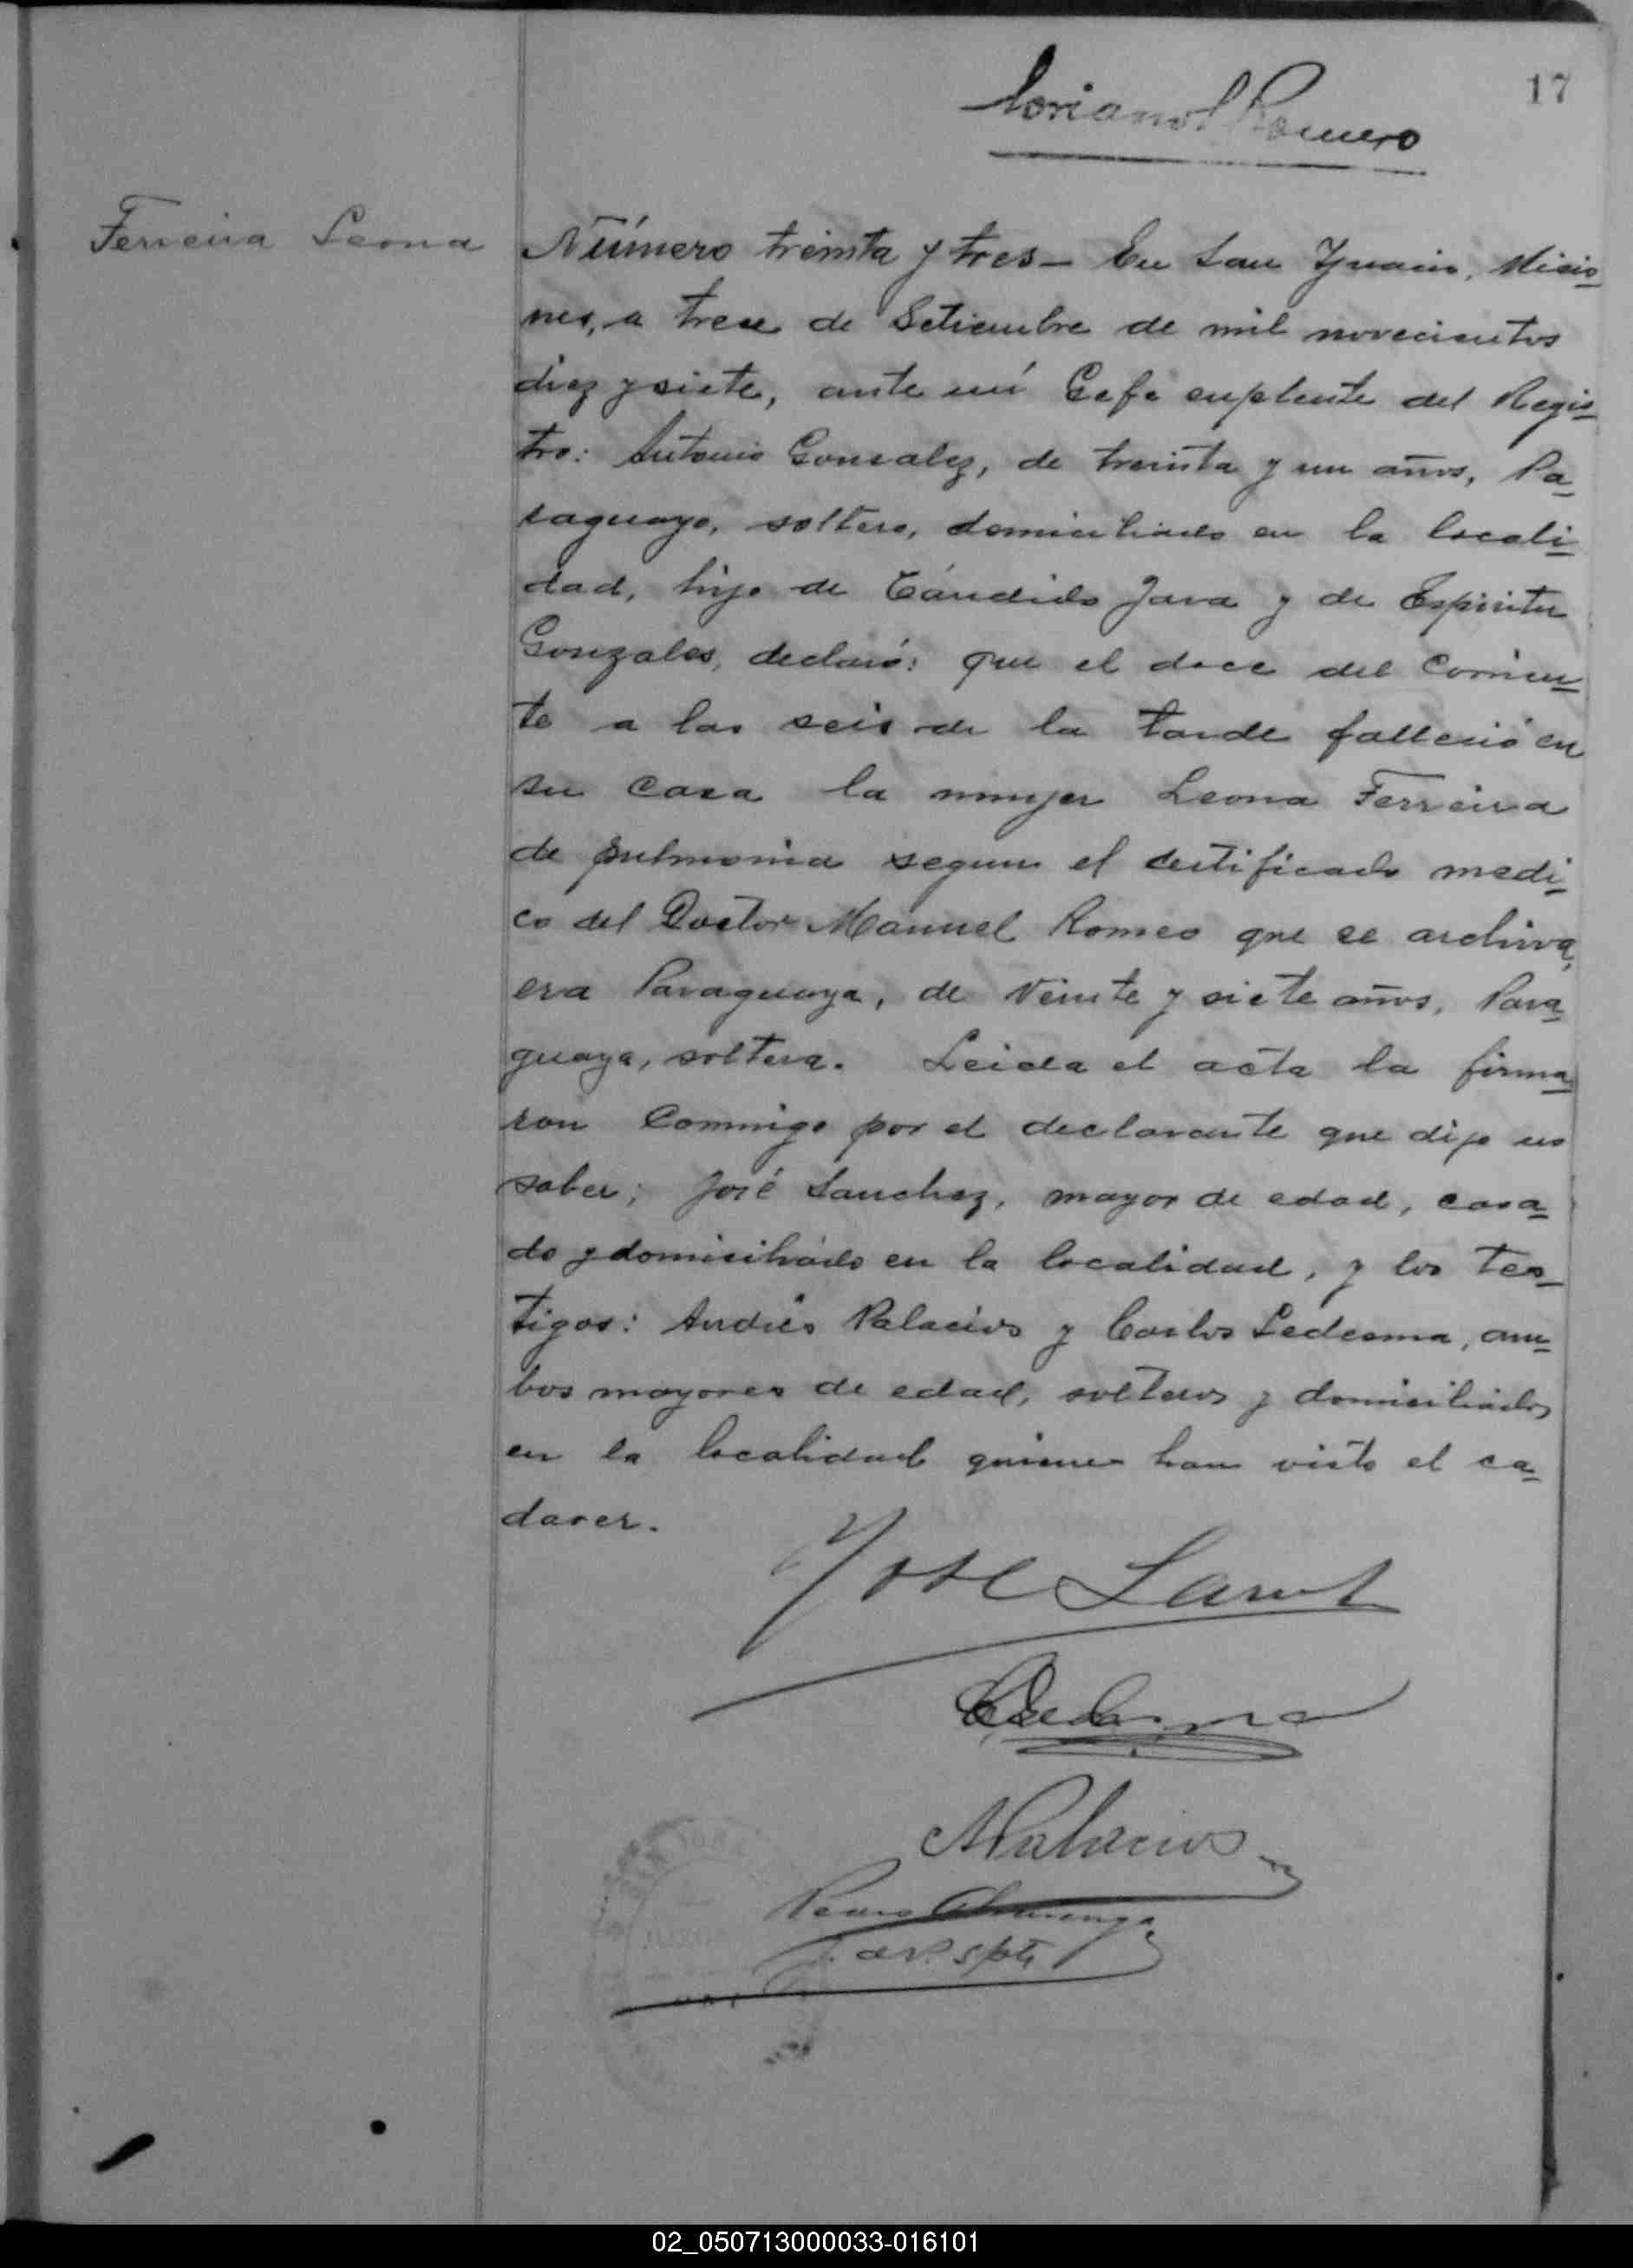 17
Romero
Ferreira Leona
Número treinta y tres — En San Ygnacio, Misio
nes, a trece de Setiembre de mil novecientos
diez y siete, ante mí Gefe suplente del Regis
tro: Antonio Gonzalez, de treinta y un años, Pa
raguayo, soltero, domiciliado en la locali
dad, hijo de Cándido Jara y de Espiritu
Gonzales, declaró: que el doce del Corrien
te a las seis de la tarde falleció en
su casa la mujer Leona Ferreira
de pulmonia segun el certificado medi
co del Doctor Manuel Romeo que se archiva,
era Paraguaya, de Veinte y siete años, Para
guaya, soltera. Leida el acta la firma
ron Conmigo por el declarante que dijo no
saber; José Sanchez, mayor de edad, casa
do y domiciliado en la localidad, y los tes
tigos: Andrés Palacios y Carlos Ledesma, am
bos mayores de edad, solteros y domiciliados
en la localidad quienes han visto el ca
daver.
Jose
Ledesma
APalacios
spte
02_050713000033-016101